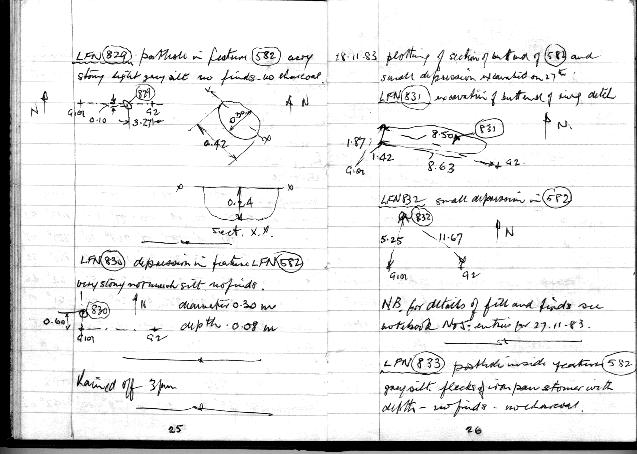 LFN 829 posthole in feature 582 very
stony light grey silt no finds - no charcoal.
829
N
G101
G2
0.10
3.27
N
0.42
X
X
X
X
0.24
Sect. X.X.
LFN 830 depression in feature LFN 582
very stony not much silt no finds.
830
N
diameter 0.30 m
0.60
depth . 0.08 m
G101
G2
Rained off 3pm
25
28.11.83 plotting of section of butt end of 582 and
small depression excavated on 27th:
LFN 831 excavation of butt end of ring ditch
N.
831
8.50
1.87
1.42
8.63
G101
G2.
LFN 832 small depression in 582
832
5.25
11.67
N
G101
G2
NB. for details of fill and finds see
notebook No 5 - entries for 27.11.83.
LFN 833 posthole inside feature 582
grey silt flecks of iron pan stonier with
depth - no finds - no charcoal.
26